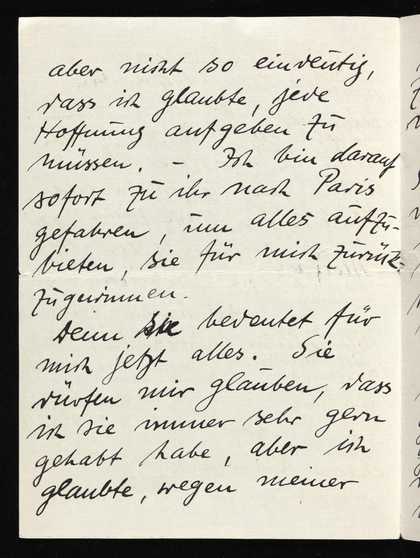 aber nicht so eindeutig,
dass ich glaubte, jede
Hoffnung aufgeben zu
müssen. – Ich bin darauf
sofort zu ihr nach Paris
gefahren, um alles aufzu-
bieten, sie für mich zurück-
zugewinnen.
Denn sie bedeutet für
mich jetzt alles. Sie
dürfen mir glauben, dass
ich sie immer sehr gern
gehabt habe, aber ich
glaubte, wegen meiner